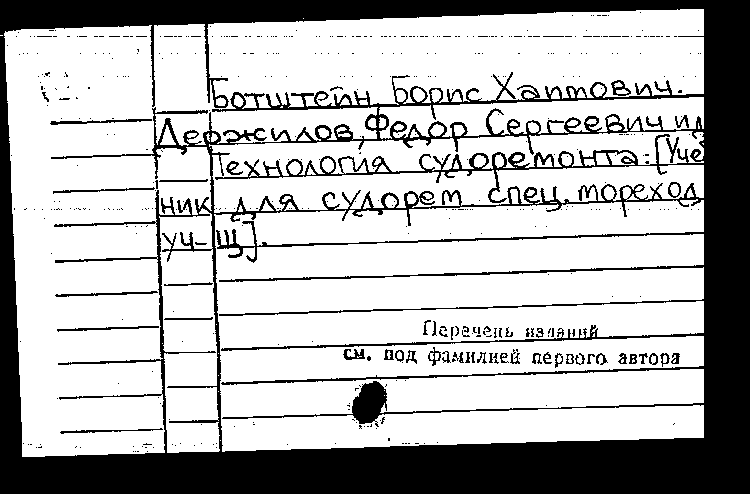 Ботштейн, Борис Хаимович.
Держилов, Федор Сергеевич и д
Технология судоремонта: [Уче
ник для судорем спец. мореход
уч-щ].
Перечень изданий
см. под фамилией первого автора